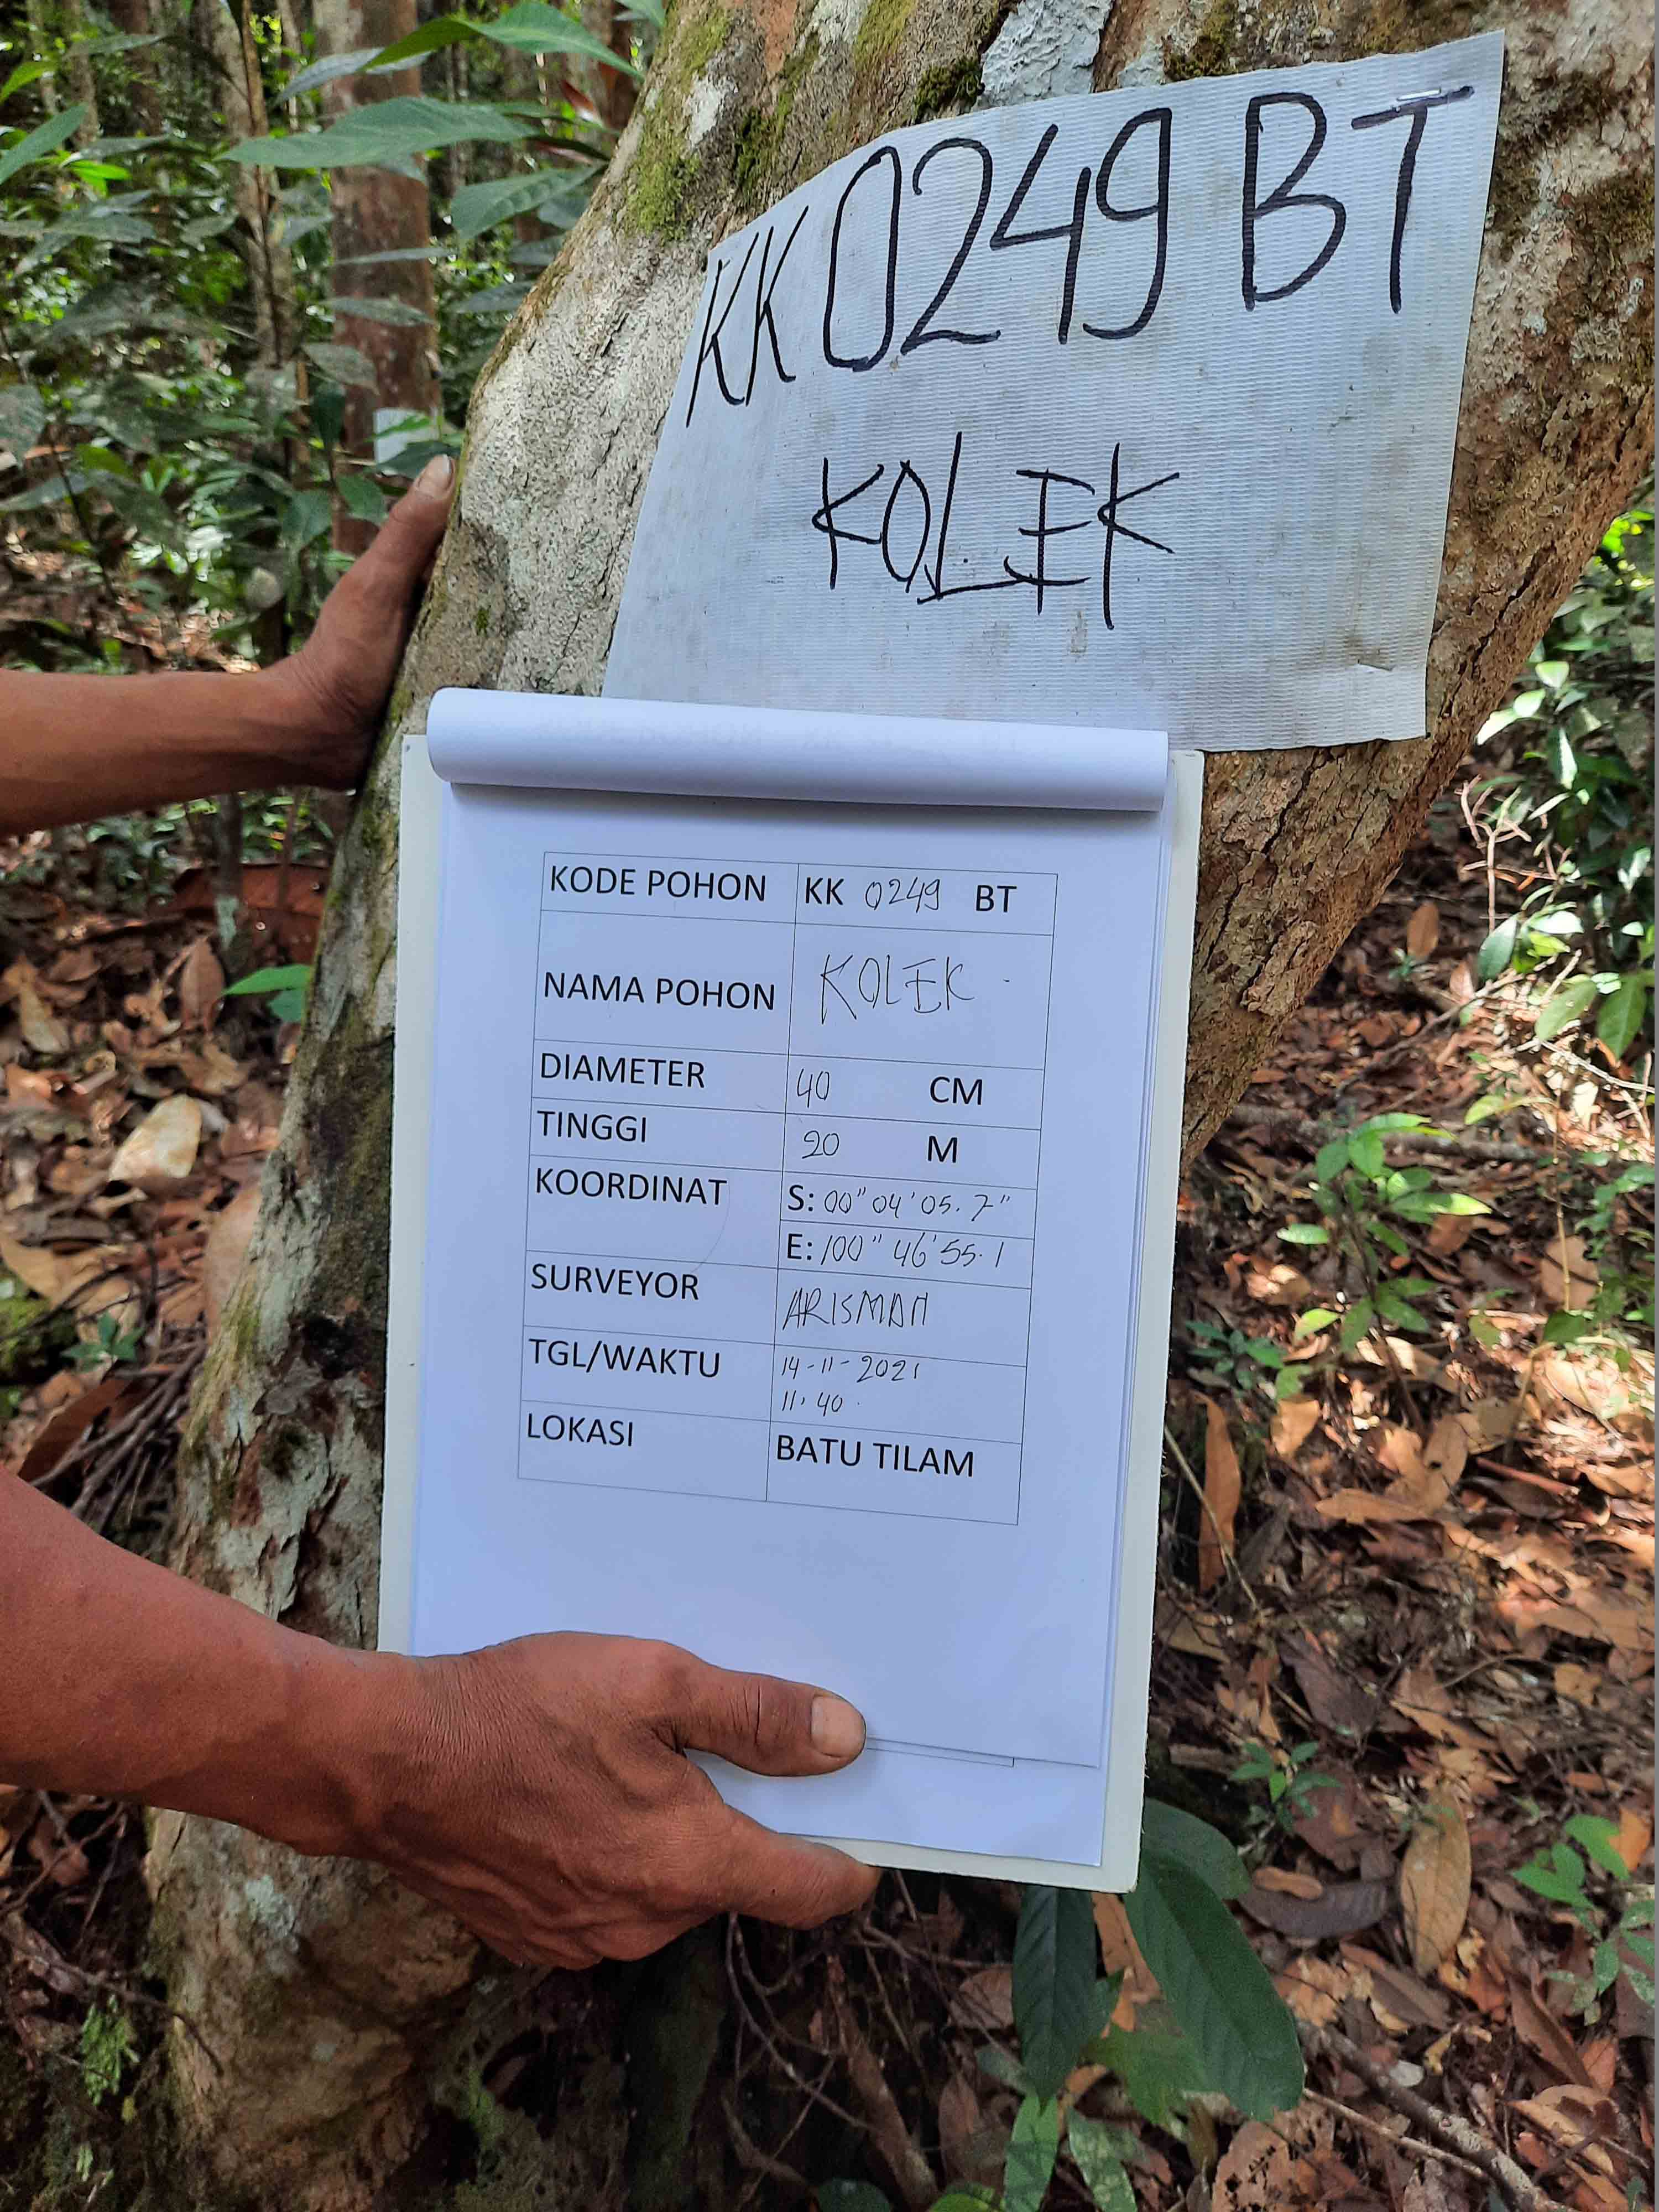 KK 0249 BT
KOLEK
KODE POHON KK 0249 BT
NAMA POHON KOLEK
DIAMETER 40 CM
TINGGI 20 M
KOORDINAT S: 00" 04' 05.7"
E: 100" 46' 55.1
SURVEYOR ARISMAN
TGL/WAKTU 14-11-2021
11.40
LOKASI BATU TILAM